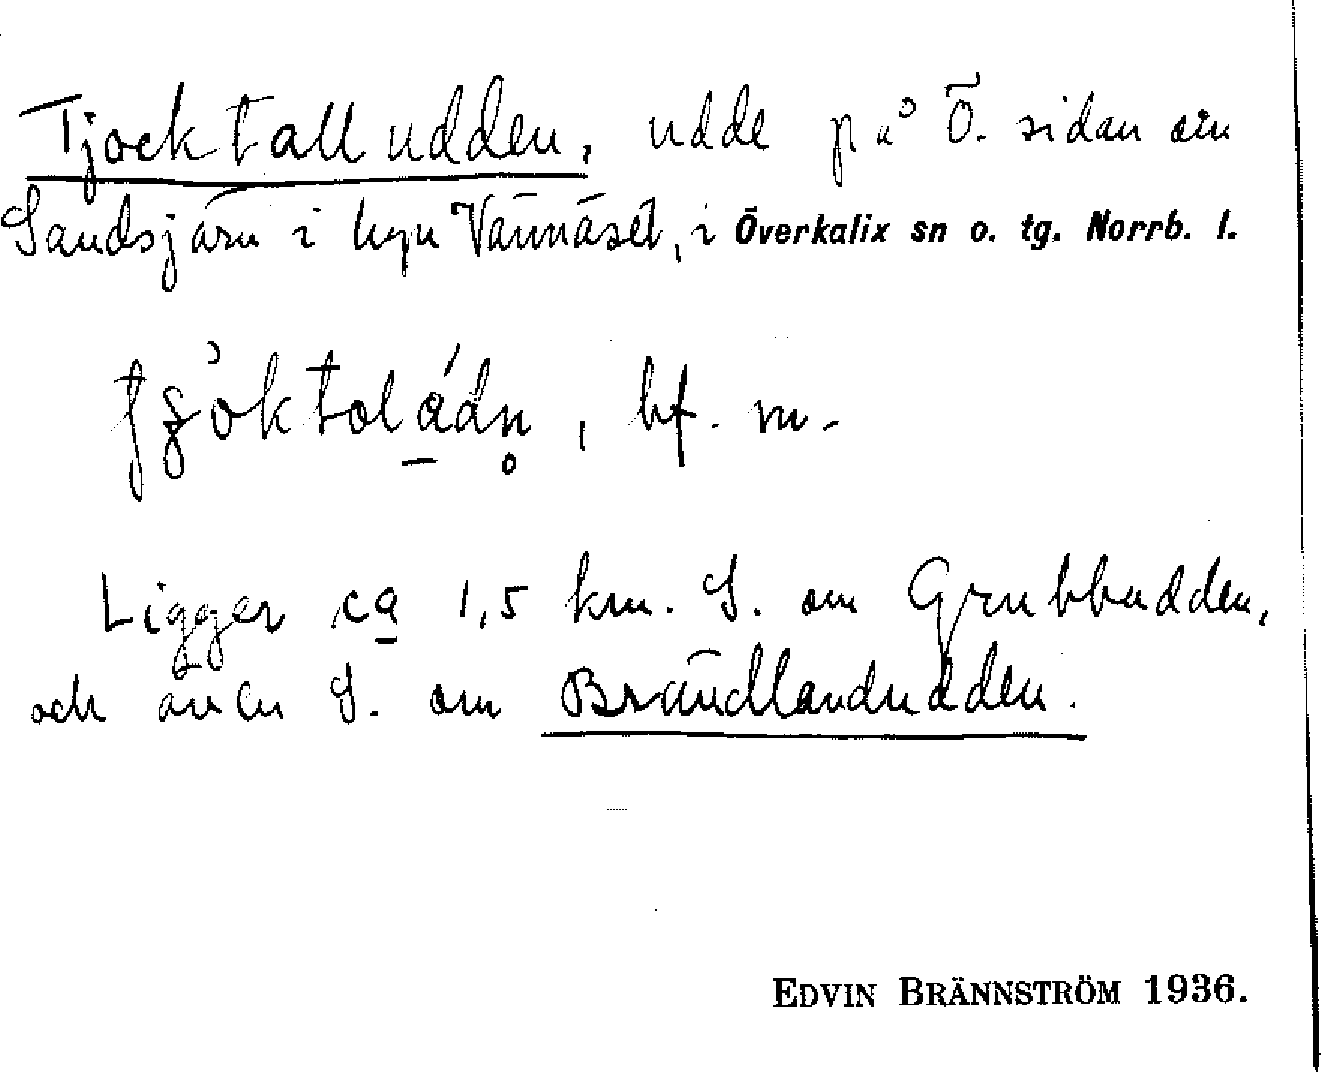 Tjocktalludden, udde på Ö. sidan om
Sandsjärn i byn Vännäset, i Överkalix sn o. tg. Norrb. l.
bf. m.
Ligger ca 1,5 km. S. om Grubbudden,
och även S. om Brändlandudden.
EDVIN BRÄNNSTRÖM 1936.